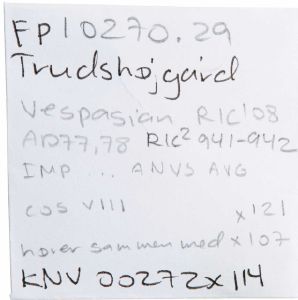 FP 10270.29
Trudshøjgård
Vespasian RIC'08
AD77,78 RIC² 941-942
IMP ... ANVS AVG
COS VIII x121
hører sammen med x107
KNV 00272x114